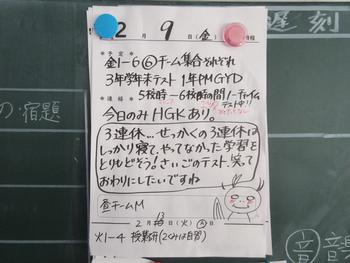 遅刻
の宿題
2月9日(金)
◆予定◆
金1-6 ⑥チーム集合それぞれ
3年学年末テスト 1年PMGYD
5校時〜6校時の間ノーチャイム
テスト中!!
◆連絡◆
今日のみHGKあり。
3連休…せっかくの3連休は
しっかり寝て、やってなかった学習を
とりもどそう!さいごのテスト、笑って
おわりにしたいですね
昼チームM
2月13日(火)
火1-4 授業研(2くみは自習)
音